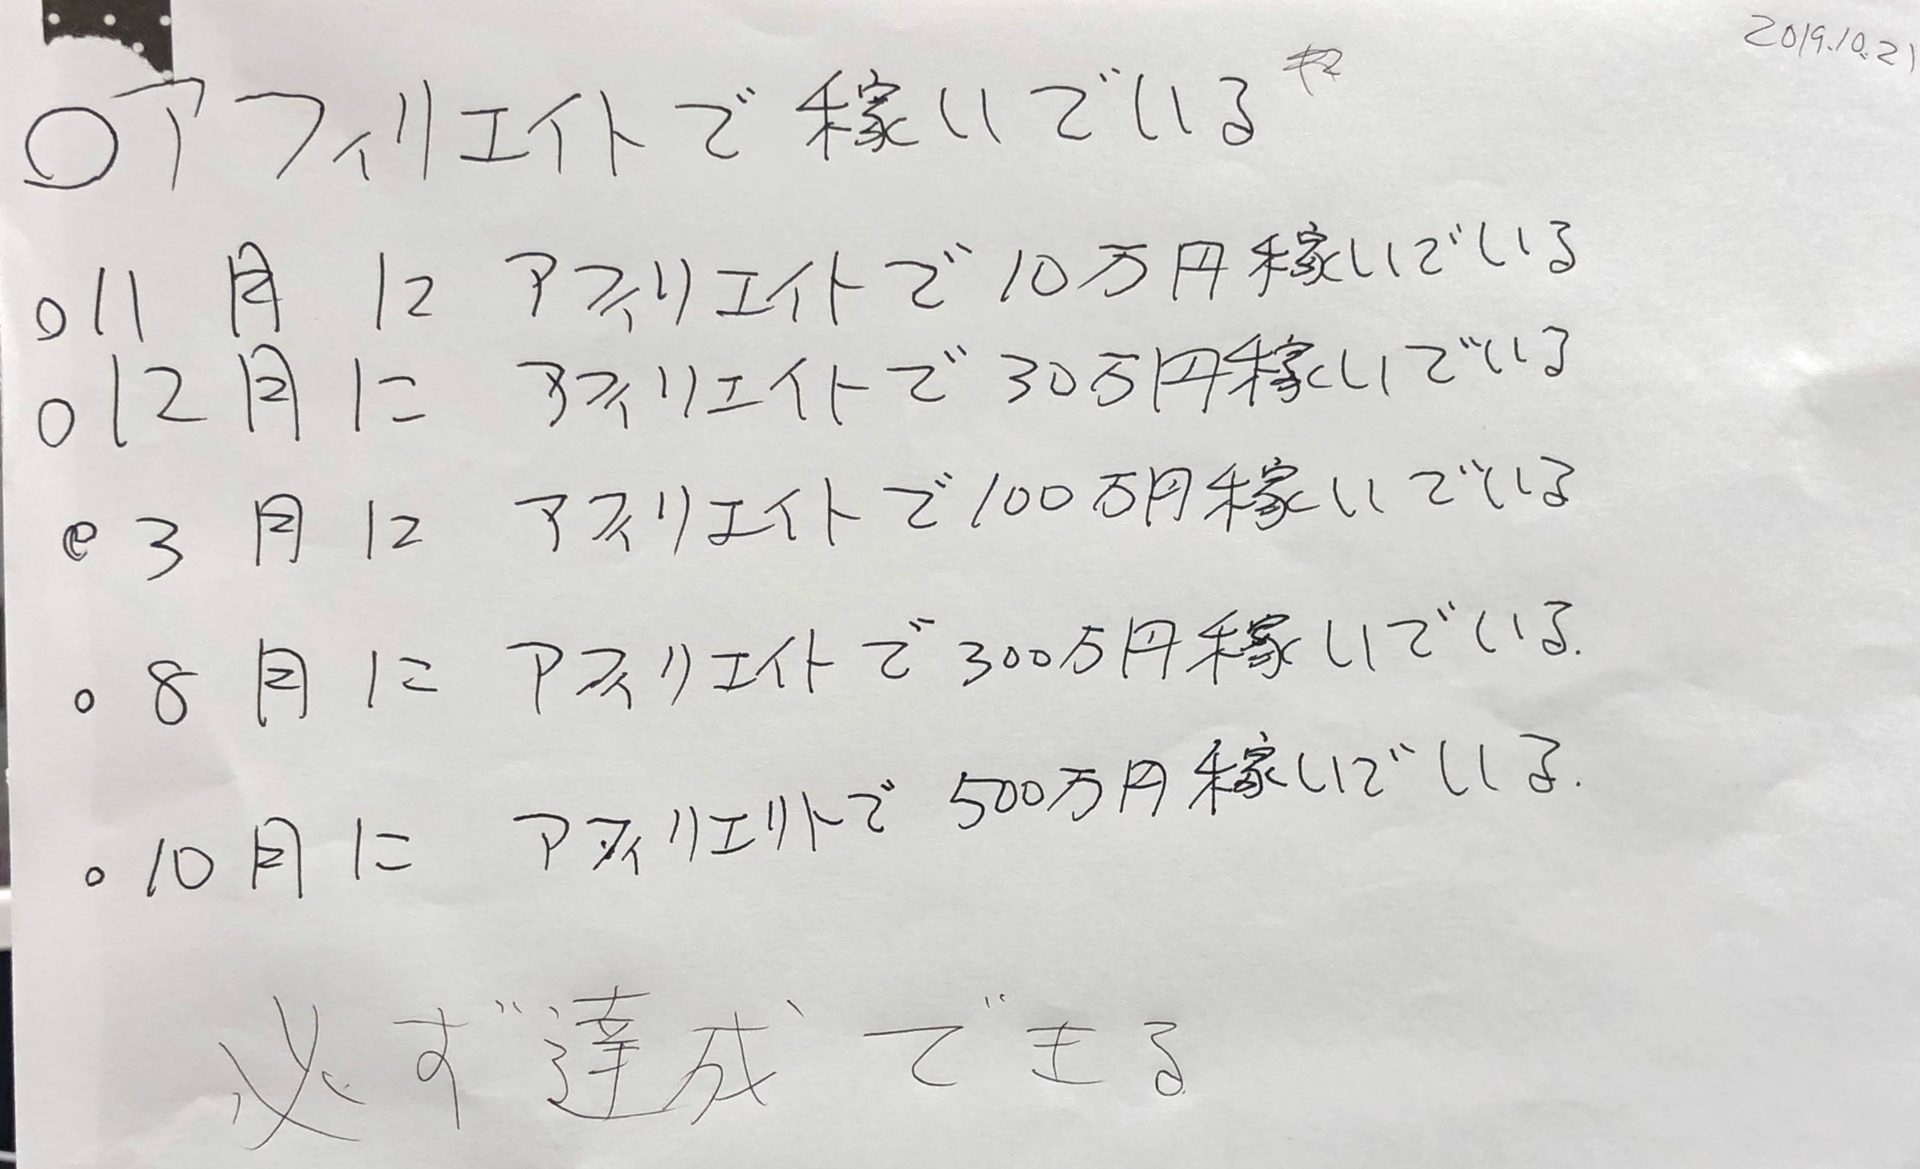 2019.10.21
○アフィリエイトで稼いでいる
○11月にアフィリエイトで10万円稼いでいる
○12月にアフィリエイトで30万円稼いでいる
○3月にアフィリエイトで100万円稼いでいる
○8月にアフィリエイトで300万円稼いでいる.
○10月にアフィリエイトで500万円稼いでいる.
必ず達成できる